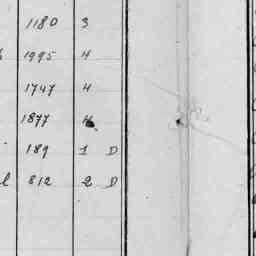 1180 3
1995 4
1747 4
1877 4
189 1 D
l 812 2 D